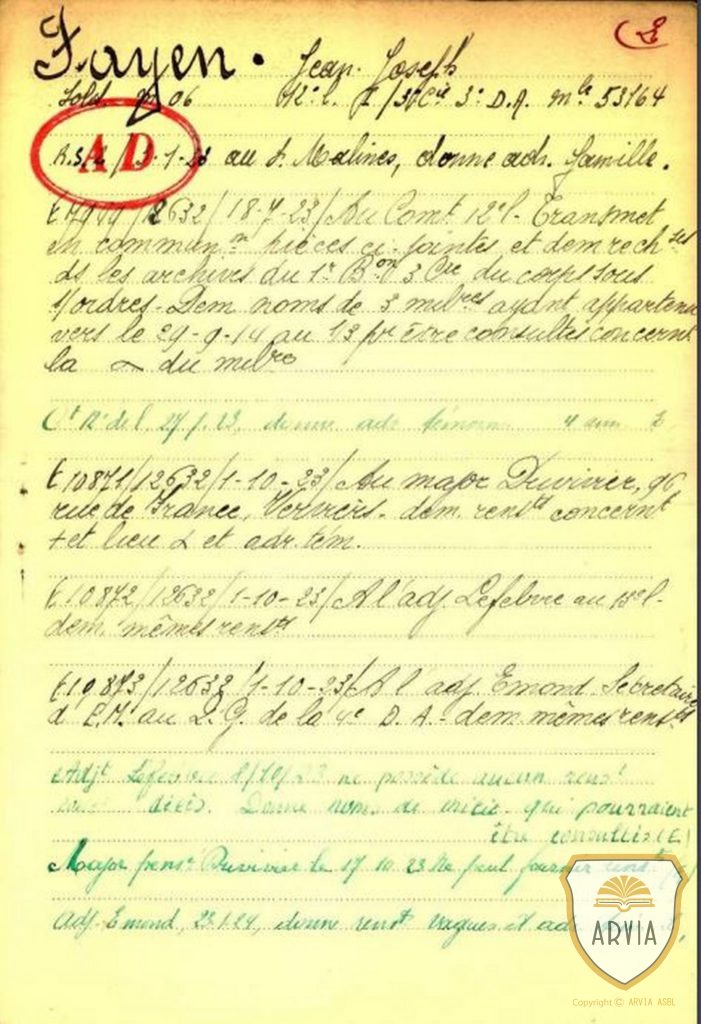 Fayen. Jean Joseph
Sold. m 06 12e l. I/3e Cie 3e D.A. mle 53164
A D
au D. Malines, donne adr. famille.
E 7999/12632/18-7-23/ Au Comt 12e l- Transmet
en communon pièces ci-jointes et dem rechses
ds les archives du 1r Bon 3 Cie du corps sous
s/ordres- Dem noms de 3 milres ayant appartenu
vers le 29-9-14 au 1/3 pr être consultés concernt
la du milre
Ct 12e de l. 27/ 23, donne adr témoin
E 10871/12632/1-10-23/ Au major Duvivier, 96
rue de France, Verviers- dem. rensts concernt
+ et lieu et adr. tém.
E 10872/12632/1-10-23/ A l'adj Lefebvre au 13e l-
dem. mêmes rensts
E 10873/12632/1-10-23/ A l'adj. Emond Secrétaire
d'E.M. au Q.G. de la 4e D.A- dem. mêmes rensts
Adjt Lefebvre 8/10/23 ne possède aucun renst
décès. Donne noms de milre qui pourraient
être consultés (E)
Major pensé Duvivier le 17 10 23 Ne peut fournir renst
Adj. Emond, 23.1.24, donne renst vagues et adr
ARVIA
Copyright © ARVIA ASBL